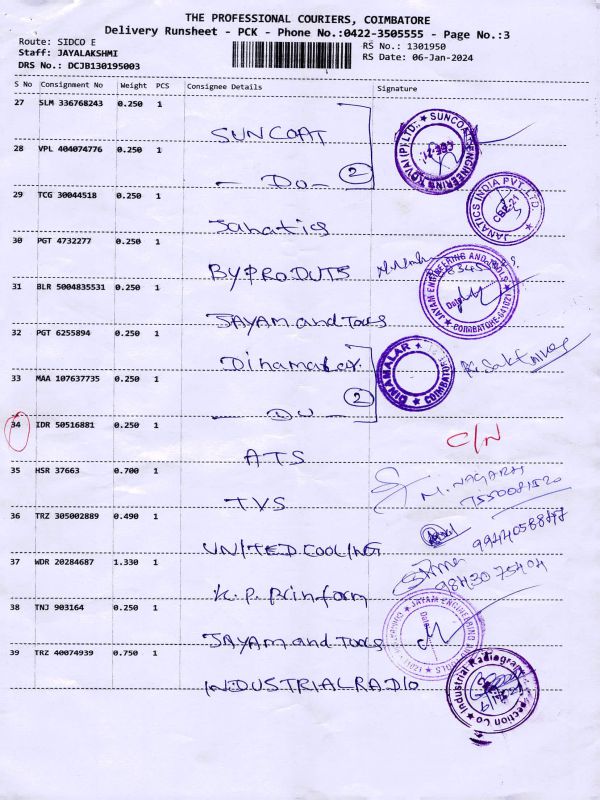 THE PROFESSIONAL COURIERS, COIMBATORE
Delivery Runsheet - PCK - Phone No.:0422-3505555 - Page No.:3
Route: SIDCO E
RS No.: 1301950
Staff: JAYALAKSHMI
RS Date: 06-Jan-2024
DRS No.: DCJB130195003
S No Consignment No Weight PCS Consignee Details Signature
27 SLM 336768243 0.250 1
SUNCOAT
28 VPL 404074776 0.250 1
- Do - 2
29 TCG 30044518 0.250 1
JANATICS INDIA PVT. LTD.
CBE-21
Janatics
30 PGT 4732277 0.250 1
BYPRODUTS
31 BLR 5004835531 0.250 1
JAYAM ENGINEERING AND TOOLS
COIMBATORE-641021
Date
JAYAM and Tools
32 PGT 6255894 0.250 1
Dinamalar
DINAMALAR
COIMBATORE
33 MAA 107637735 0.250 1
- DO - 2
34 IDR 50516881 0.250 1
C/N
ATS
35 HSR 37663 0.700 1
M. NAGARAJ
TVS
36 TRZ 305002889 0.490 1
UNITED COOLING
37 WDR 20284687 1.330 1
9843075404
K. P. Prinform
38 TNJ 903164 0.250 1
JAYAM and Tools
39 TRZ 40074939 0.750 1
INDUSTRIAL RADIO